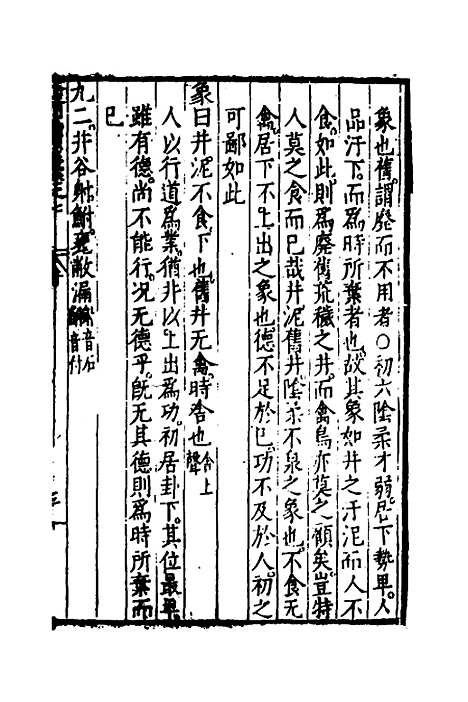 象也舊謂廢而不用者○初六陰柔才弱居下勢卑人
品汙下而爲時所棄者也故其象如井之汙泥而人不
食如此則爲廢舊荒穢之井而禽鳥亦莫之顧矣豈特
人莫之食而已哉井泥舊井陰柔不泉之象也不食无
禽居下不上出之象也德不足於已功不及於人初之
可鄙如此
象曰井泥不食下也舊井无禽時舍也舍上聲
人以行道爲業猶井以上出爲功初居卦下其位最卑
雖有德尚不能行况无德乎旣无其德則爲時所棄而
已
九二井谷射鮒甕敝漏射音石鮒音付